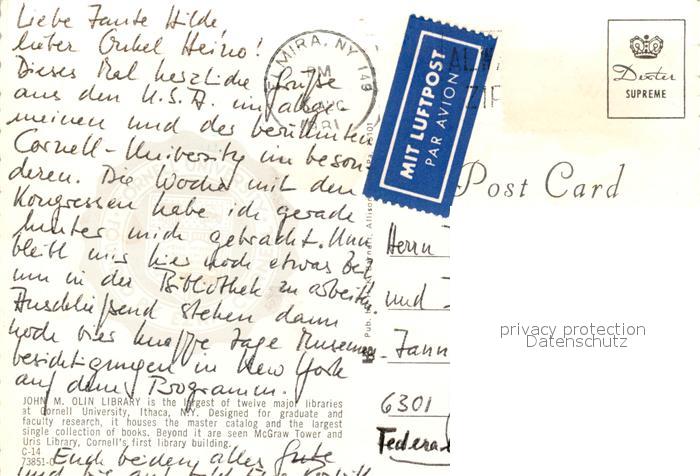 Liebe Tante Hilde,
lieber Onkel Heino!
Dieses Mal herzliche Grüße
aus den U.S.A. im allge-
meinen und der berühmten
Cornell-University im beson-
deren. Die Woche mit den
Kongressen habe ich gerade
hinter mich gebracht. Nun
bleibt mir hier noch etwas Zeit
um in der Bibliothek zu arbeiten.
Anschließend stehen dann
noch vier knappe Tage Museums-
besichtigungen in New York
auf dem Programm.
JOHN M. OLIN LIBRARY is the largest of twelve major libraries
at Cornell University, Ithaca, N.Y. Designed for graduate and
faculty research, it houses the master catalog and the largest
single collection of books. Beyond it are seen McGraw Tower and
Uris Library, Cornell's first library building.
C-14
73851-C
Euch beiden alles Gute
und bis
ELMIRA, NY 149
PM
1981
MIT LUFTPOST
PAR AVION
ZIP
Dexter
SUPREME
Post Card
Pub. Allison
Herrn
und
6301
Federal
privacy protection
Datenschutz